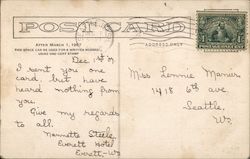 POST CARD
AFTER MARCH 1, 1907
THIS SPACE CAN BE USED FOR A WRITTEN MESSAGE
ADDRESS ONLY
Dec 1st 07
I sent you one
card, but have
heard nothing from
you.
Give my regards
to all.
Nannette Steele
Everett Hotel
Everett - Wn
Miss Lonnie Manier
1418 6th ave.
Seattle,
Wn